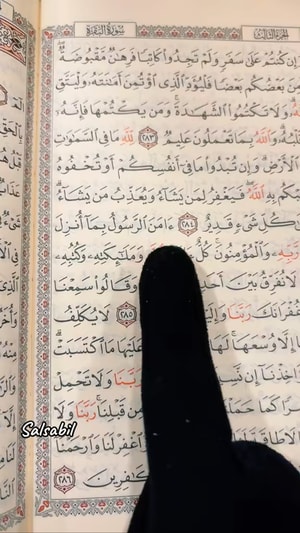 سُورَةُ البَقَرَةِ الجُزْءُ الثَّالِثُ
إِن كُنتُمْ عَلَىٰ سَفَرٍ وَلَمْ تَجِدُوا۟ كَاتِبًا فَرِهَـٰنٌ مَّقْبُوضَةٌ
مِنَ بَعْضُكُم بَعْضًا فَلْيُؤَدِّ ٱلَّذِى ٱؤْتُمِنَ أَمَـٰنَتَهُۥ وَلْيَتَّقِ
وَلَا تَكْتُمُوا۟ ٱلشَّهَـٰدَةَ وَمَن يَكْتُمْهَا فَإِنَّهُۥٓ
وَٱللَّهُ بِمَا تَعْمَلُونَ عَلِيمٌ ٢٨٣ لِّلَّهِ مَا فِى ٱلسَّمَـٰوَٰتِ
ٱلْأَرْضِ وَإِن تُبْدُوا۟ مَا فِىٓ أَنفُسِكُمْ أَوْ تُخْفُوهُ
كُم بِهِ ٱللَّهُ فَيَغْفِرُ لِمَن يَشَآءُ وَيُعَذِّبُ مَن يَشَآءُ
كُلِّ شَىْءٍ قَدِيرٌ ٢٨٤ ءَامَنَ ٱلرَّسُولُ بِمَآ أُنزِلَ
رَّبِّهِۦ وَٱلْمُؤْمِنُونَ كُلٌّ وَمَلَـٰٓئِكَتِهِۦ وَكُتُبِهِۦ
لَا نُفَرِّقُ بَيْنَ أَحَدٍ وَقَالُوا۟ سَمِعْنَا
غُفْرَانَكَ رَبَّنَا وَإِلَ ٢٨٥ لَا يُكَلِّفُ
إِلَّا وُسْعَهَا لَهَا عَلَيْهَا مَا ٱكْتَسَبَتْ
ؤَاخِذْنَآ إِن نَّسِ رَبَّنَا وَلَا تَحْمِلْ
صْرًا كَمَا حَمَلْتَ مِن قَبْلِنَا رَبَّنَا وَلَا
لَا طَاقَةَ ٱغْفِرْ لَنَا وَٱرْحَمْنَآ
كَـٰفِرِينَ ٢٨٦
Salsabil